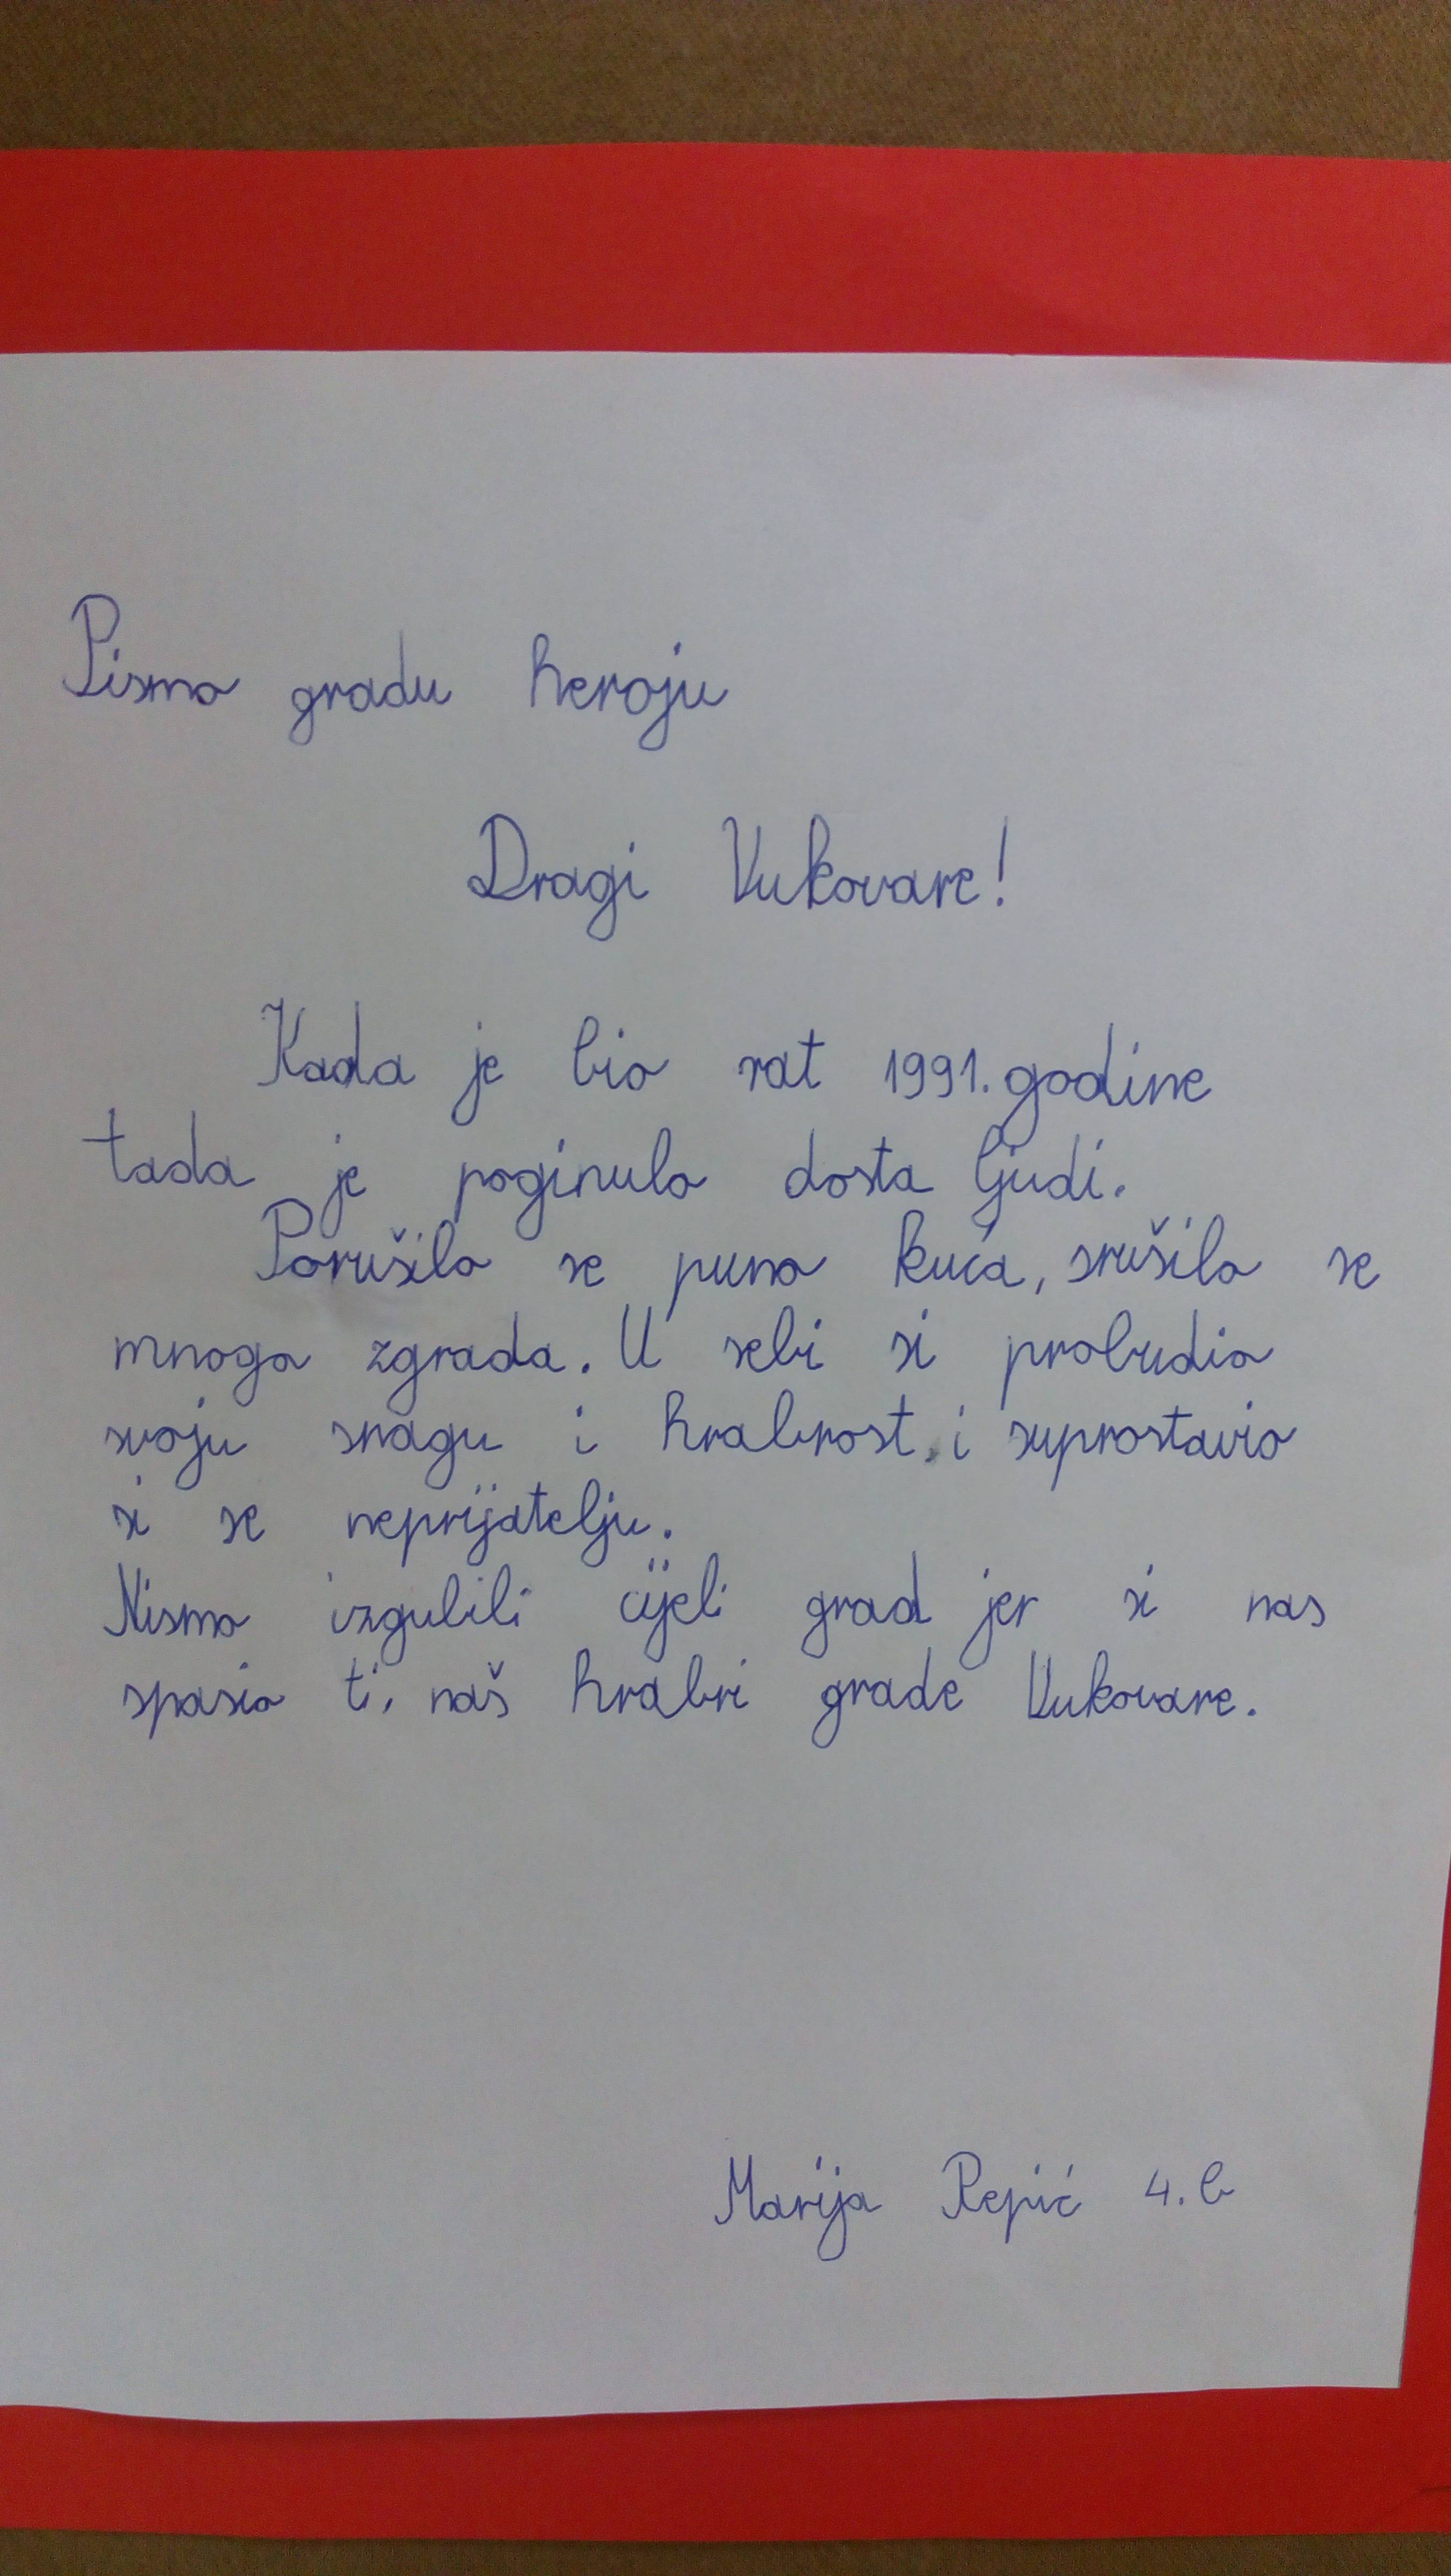 Pismo gradu heroju
Dragi Vukovare!
Kada je bio rat 1991. godine
tada je poginulo dosta ljudi.
Porušilo se puno kuća, srušilo se
mnogo zgrada. U sebi si probudio
svoju snagu i hrabrost, i suprostavio
si se neprijatelju.
Nismo izgubili cijeli grad jer si nas
spasio ti, naš hrabri grade Vukovare.
Marija Repić 4. b